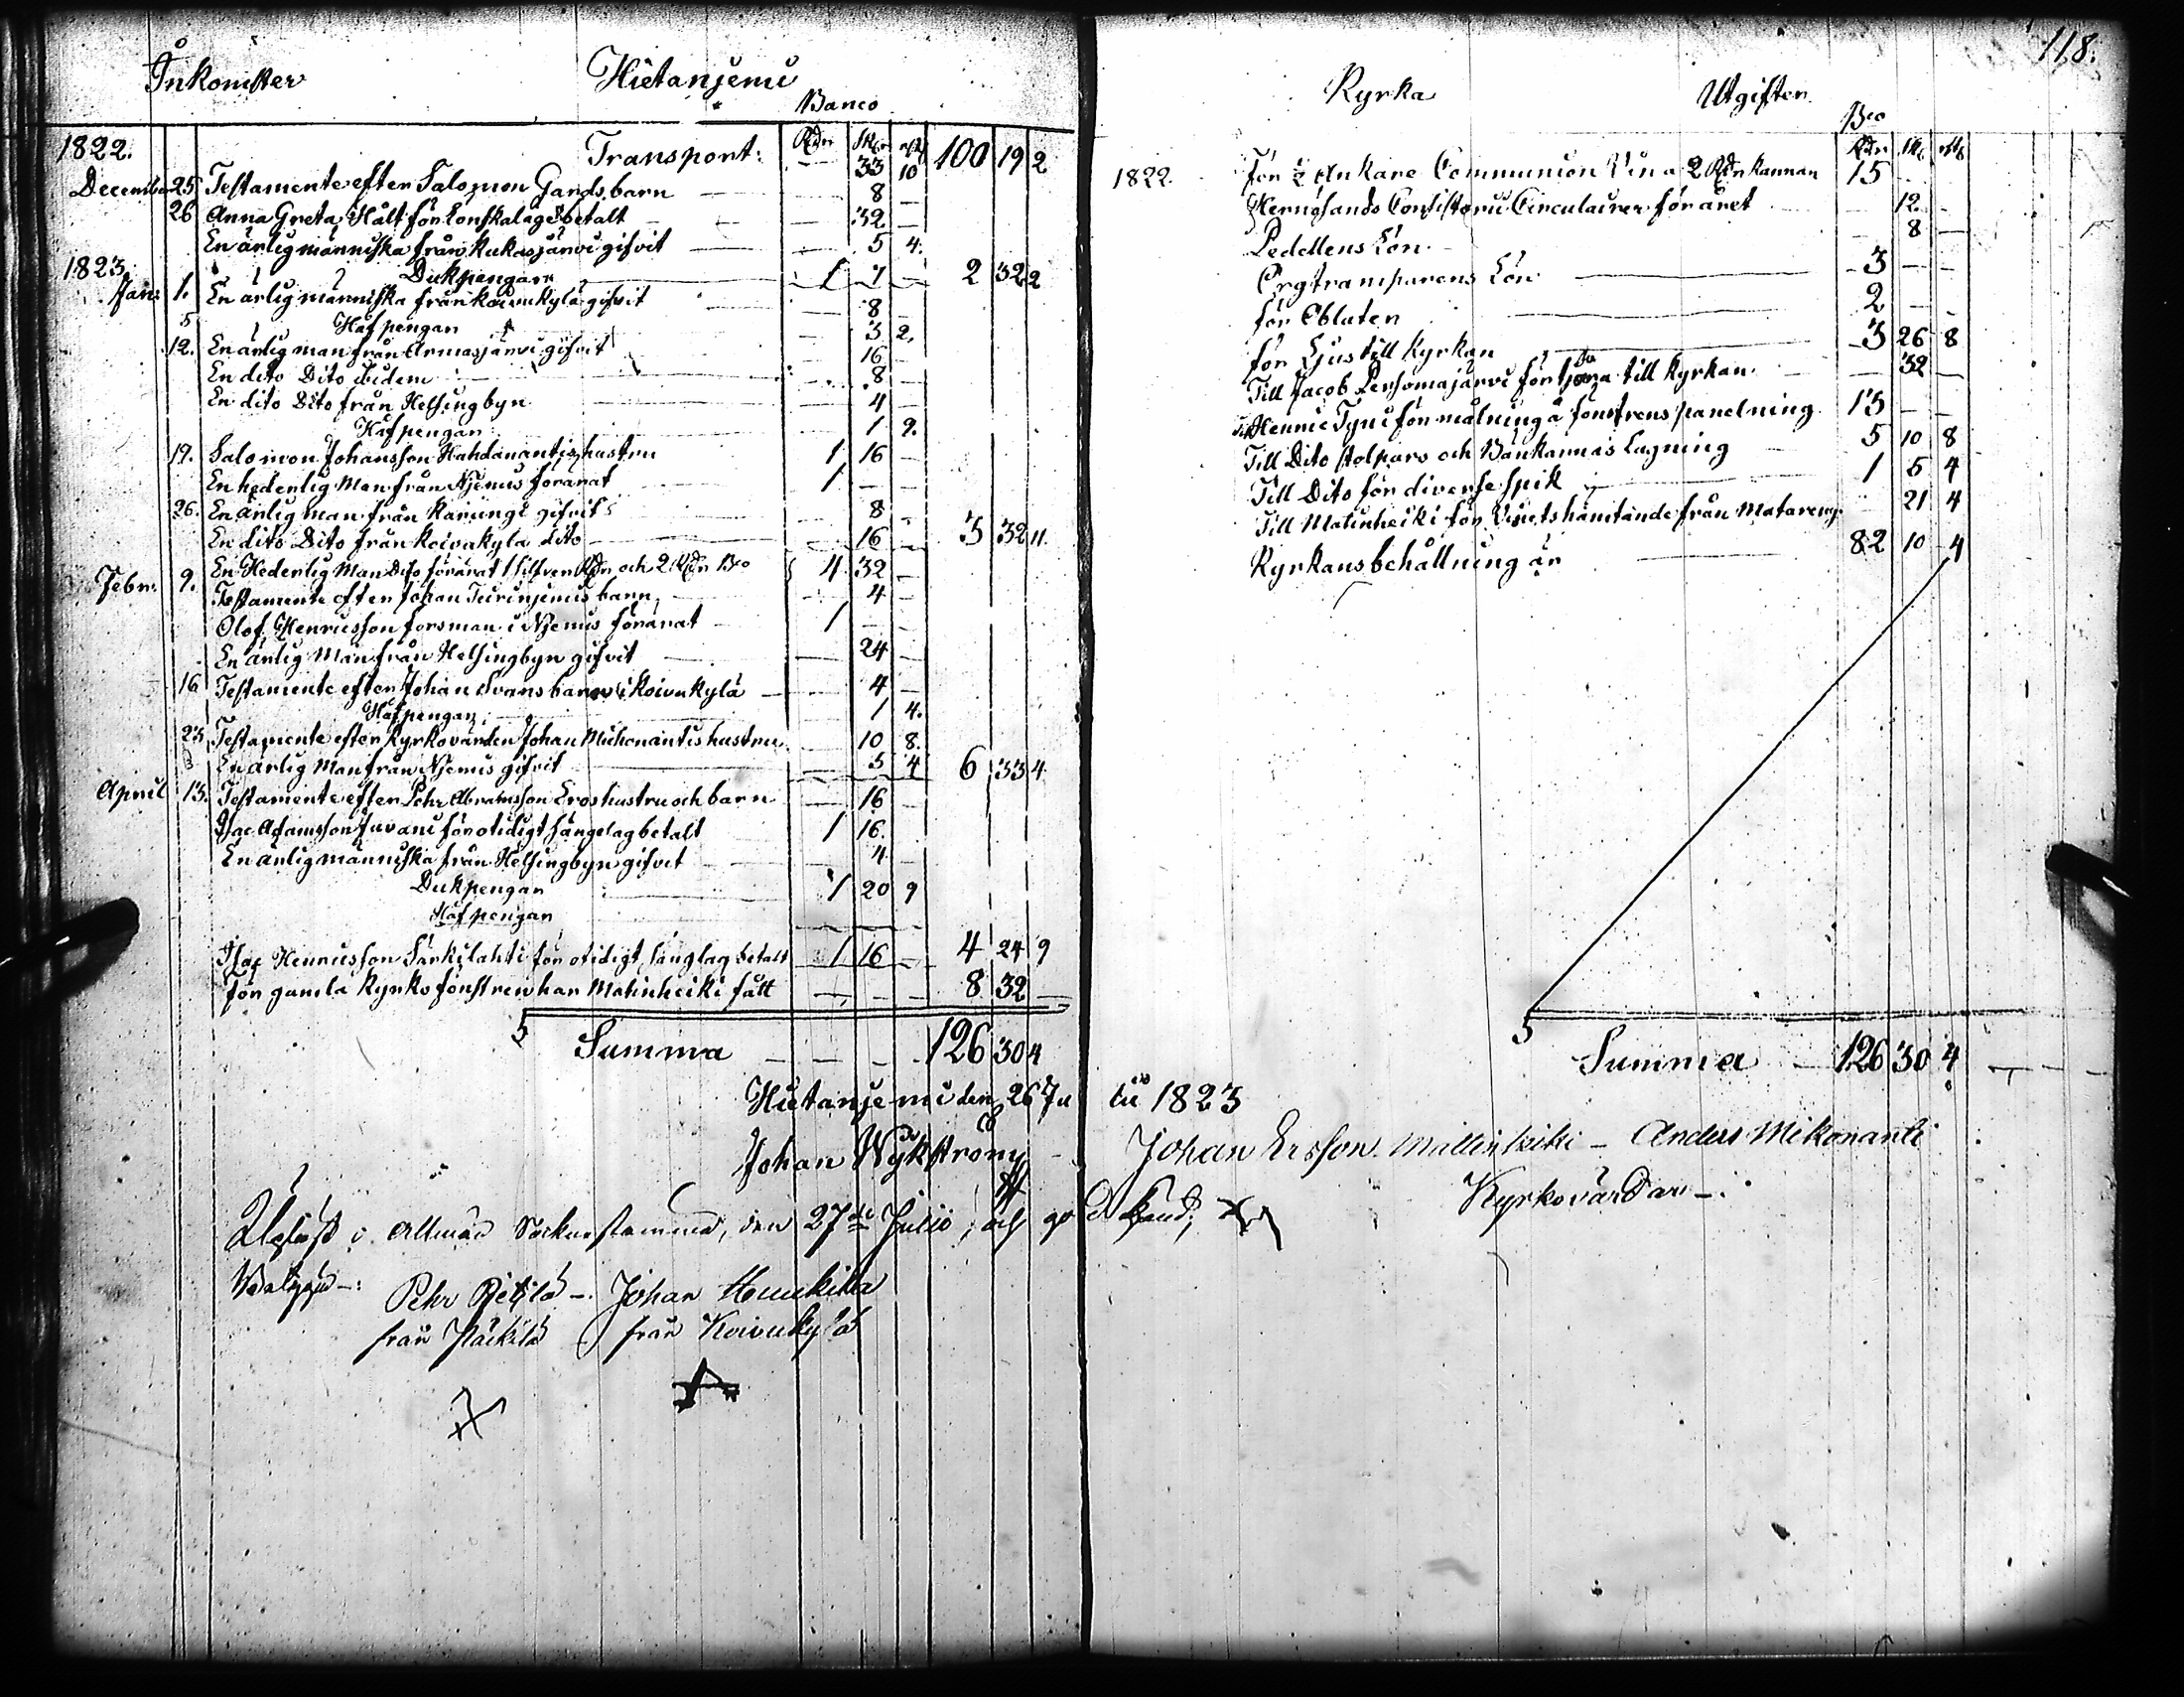 Inkomster Hietanjemi
Banco
1822. Transport: Rdr Sk rst 100 19 2
33 10
December 25 Testamente efter Salomon Gards barn — 8 —
26 Anna Greta Hålt för Lönskalage betalt — 32 —
En ärlig människa från Kukasjärvi gifvit — 5 4.
1823 Dukpengar 1 7 — 2 32 2
Jan: 1. En ärlig människa från Koivukylä gifvit — 8 —
5 Håfpengar — 3 2.
12. En ärlig man från Armasjärvi gifvit — 16 —
En dito Dito ibidem — 8 —
En dito Dito från Helsingbyn — 4 —
Håfpengar 1 9.
19. Salomon Johansson Hahdanantis hustru 1 16 —
En hederlig Man från Njemis förärat 1 — —
26. En ärlig man från Karungi gifvit — 8 —
En dito Dito från Koivukyla dito — 16 — 3 32 11.
Febr. 9. En Hederlig Man Dito förärat 1 Silfver Rdr och 2 Rdr Bco 4 32 —
Testamente efter Johan barn — 4 —
Olof Henricsson Forsman i Njemis förärat 1 — —
En ärlig Man från Helsingbyn gifvit — 24 —
16 Testamente efter Johan Svans barn i Koivukylä — 4 —
Håfpengar — 1 4.
23 Testamente efter Kyrkovärden Johan Mikonantis hustru 10 8.
En ärlig Man från Njemis gifvit — 5 4 6 33 4
April 13. Testamente efter Pehr Abramsson Eros hustru och barn — 16 —
Isac Adamsson Juvani för otidigt sängelag betalt 1 16.
En ärlig människa från Helsingbyn gifvit — 4 —
Dukpengar 1 20 9
Håfpengar
Isac Henricsson Särkilahti för otidigt sänglag betalt 1 16 — 4 24 9
För gamla Kyrkofönstren har Matinheiki fått — — — 8 32 —
S Summa — — — 126 30 4
Hietanjemi den 26 Ju
Johan Wykström
Uplæst i Allmän Sockenstämma, den 27de Julii, och go
Betygar —: Pehr Pietilä —. Johan Hannukilla
från Päckilä från Koivukylä
118.
Kyrka Utgifter.
Bco
Rdr Sk rst
1822. För ½ Ankare Communion Vin a 2 Rdr kannan 15 —
Hernösands Consistorii Circulairer för året — 12. —
Pedellens Lön — 8 —
Orgtramparens Lön — 3 — —
för Oblater — 2 — —
för Ljus till Kyrkan — 3 26 8
Till Jacob Persomajärvi för tjära till Kyrkan — 32 —
Till Hennic Tyni för målning å fönstrens panelning 13 — —
Till Dito stolpars och Bänkarnas Lagning 5 10 8
Till Dito för diverse spik — 1 5 4
Till Matinheiki för Vinets hämtande från Matareng: 21 4
Kyrkans behållning är — 82 10 4
S Summa — 126 30 4
lii 1823
Johan Ersson Mattinheiki — Anders Mikonanti
Kyrkovärdar —.
dkänd;